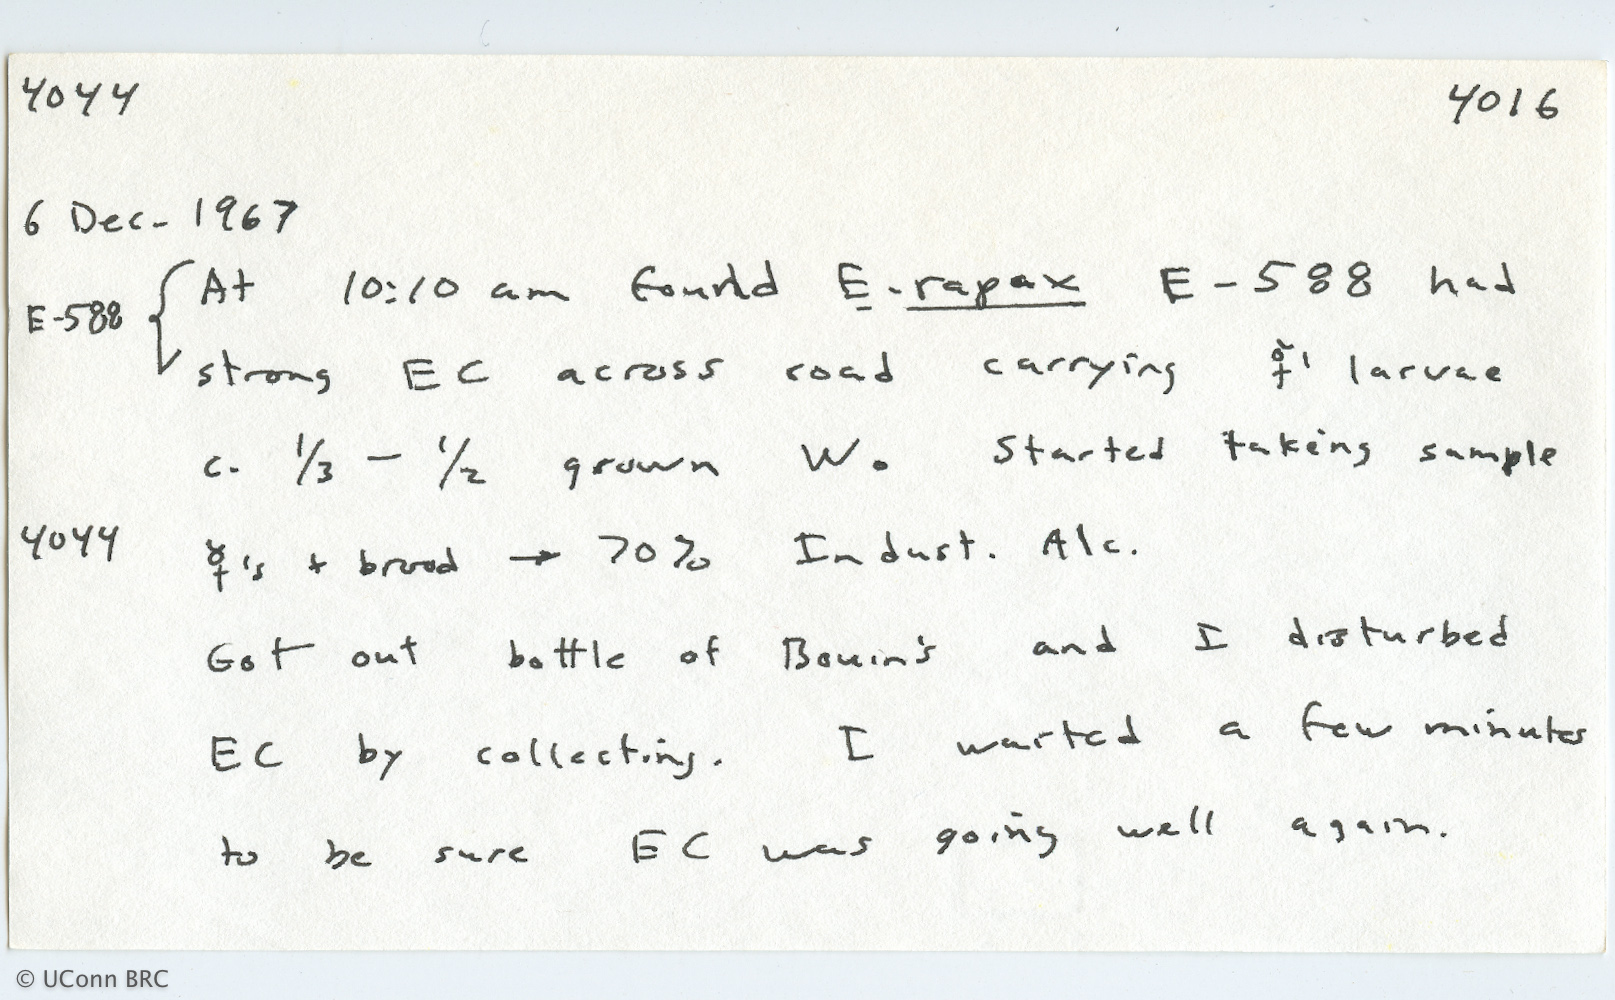 4044 4016
6 Dec- 1967
E-588 { At 10:10 am found E. rapax E-588 had
strong EC across road carrying ☿' larvae
c. 1/3 - 1/2 grown W. Started taking sample
4044 ☿'s + brood → 70% Indust. Alc.
Got out bottle of Bouin's and I disturbed
EC by collecting. I waited a few minutes
to be sure EC was going well again.
© UConn BRC